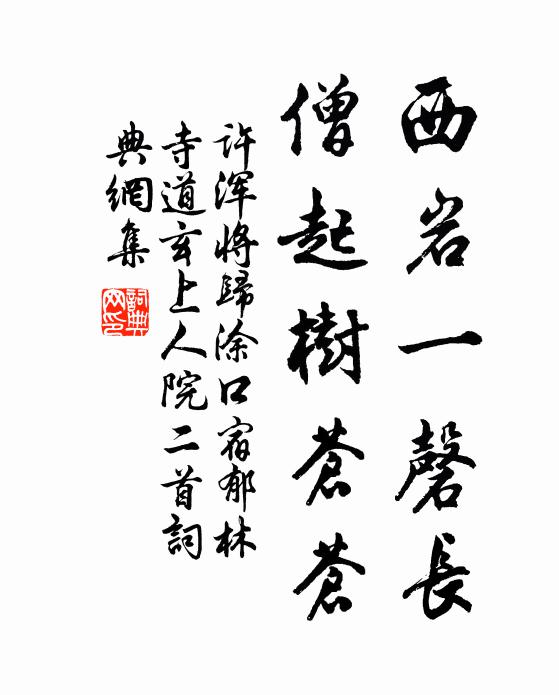 西岩一磬長
僧起樹蒼蒼
許渾將歸涂口宿郁林
寺道玄上人院二首詞
典網集
詞典網印